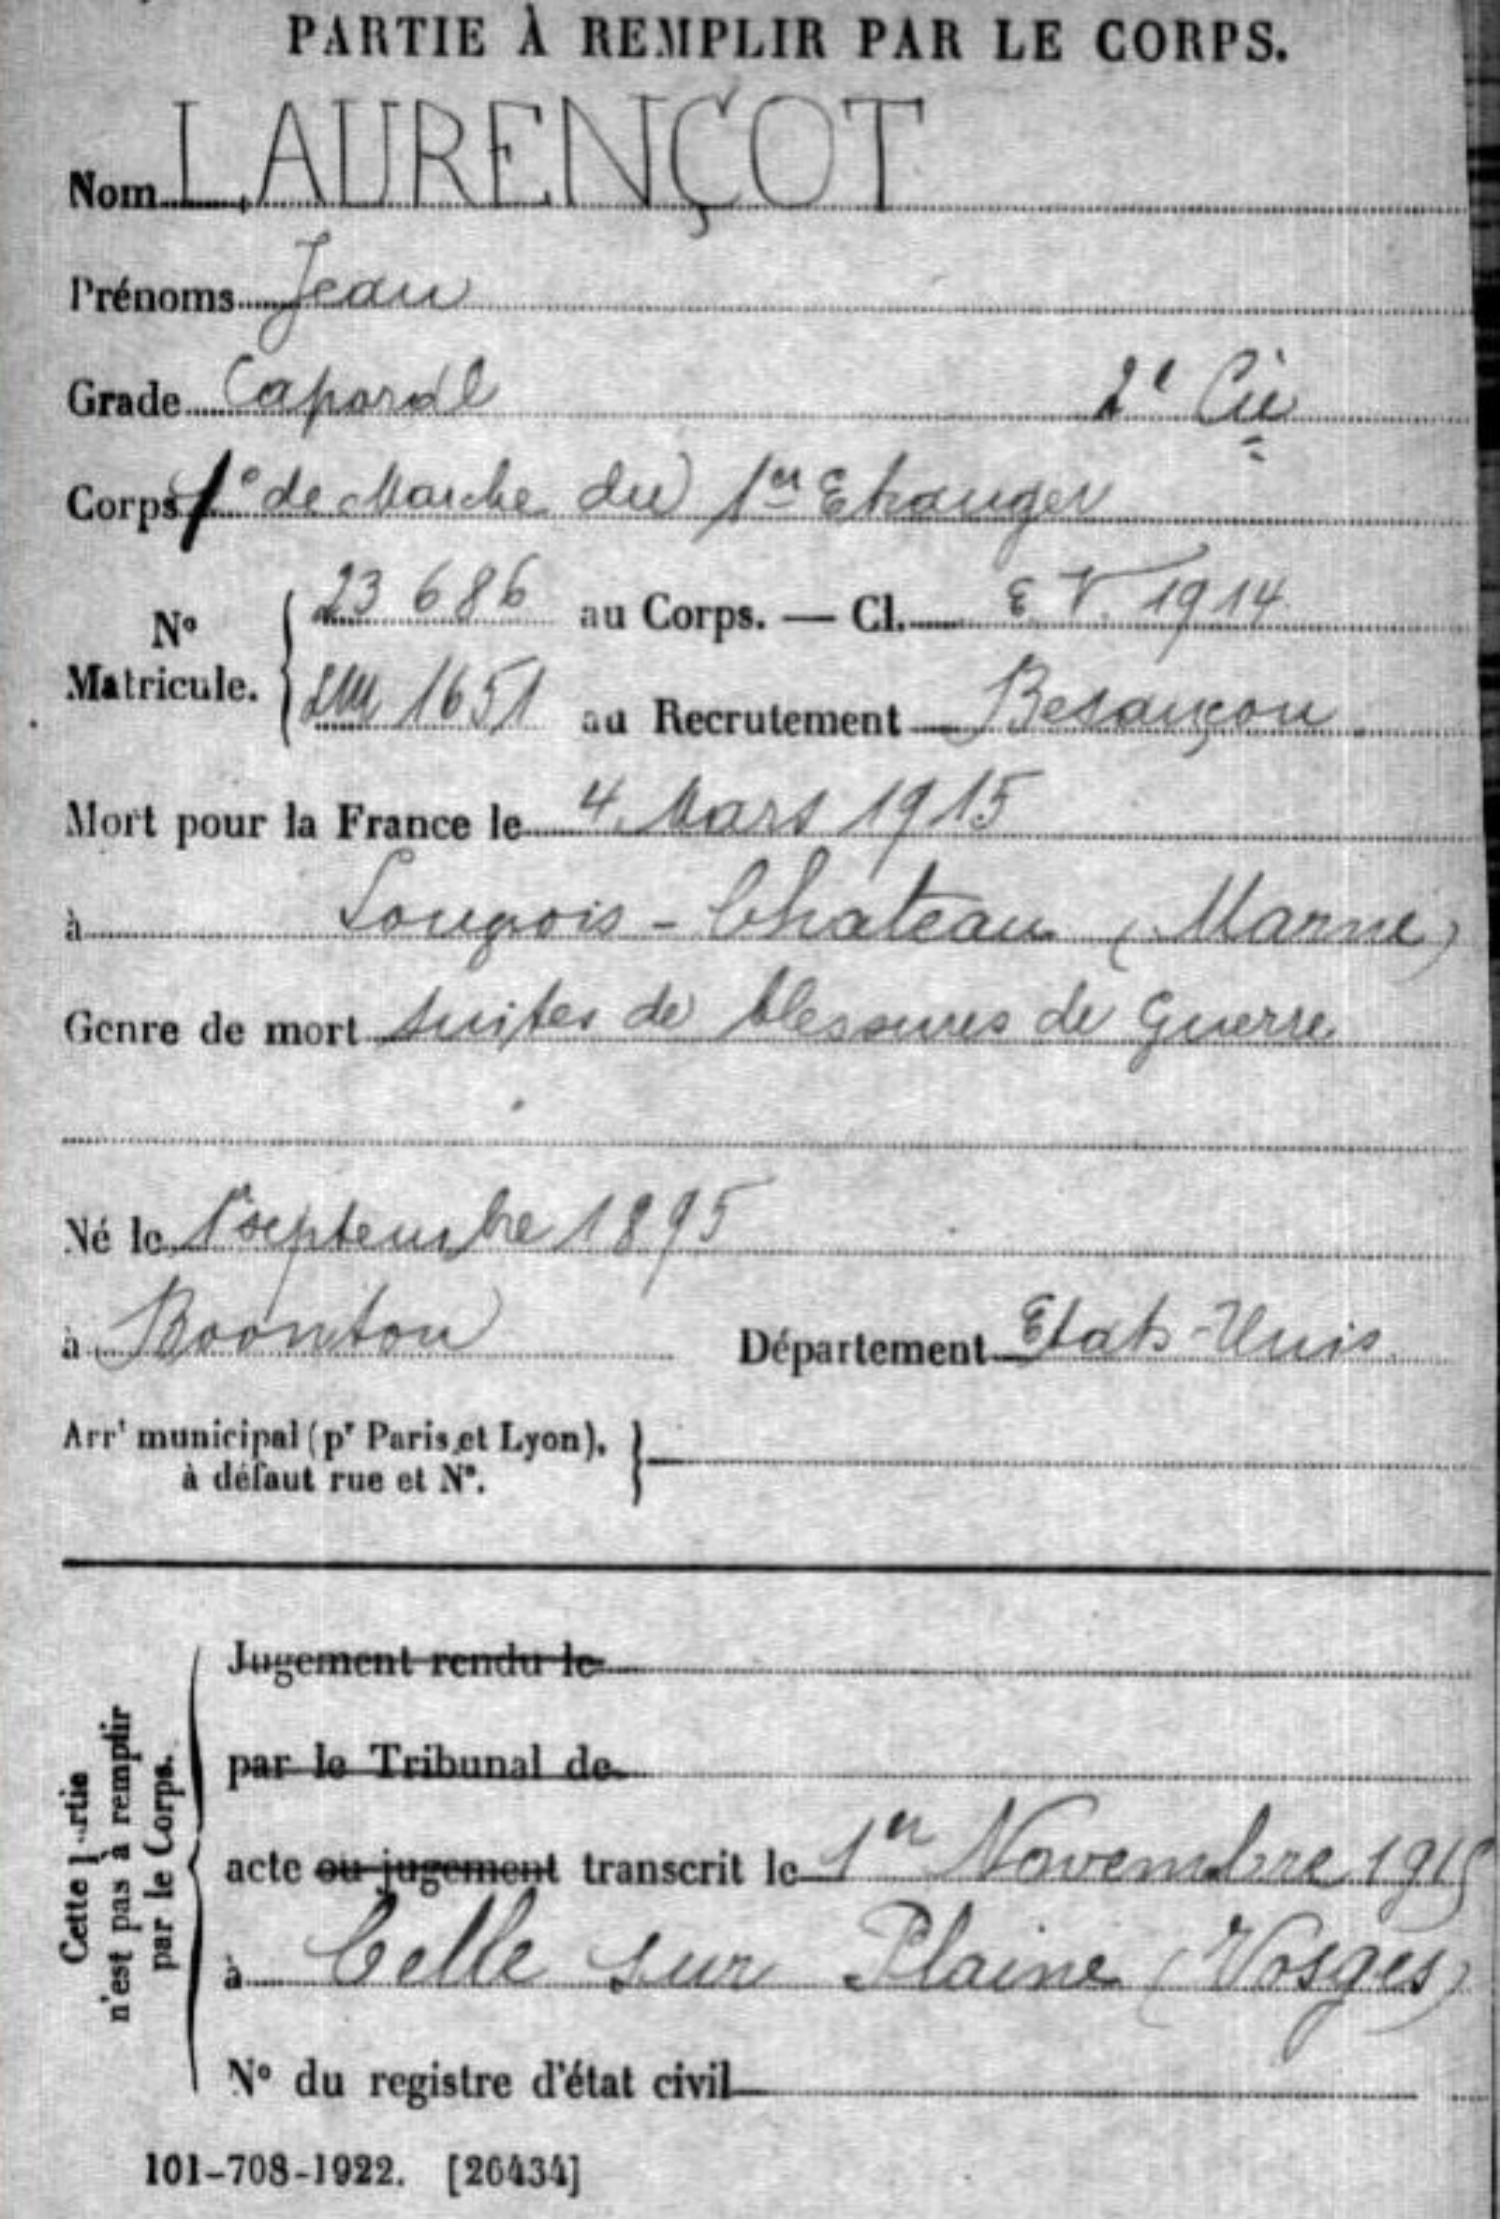 PARTIE À REMPLIR PAR LE CORPS.
Nom LAURENÇOT
Prénoms Jean
Grade Caporal 2e Cie
Corps 1e de Marche du 1er Etranger
No Matricule. 23 686 au Corps. — Cl. E. V. 1914
1651 au Recrutement Besançon
Mort pour la France le 4 Mars 1915
à Longvois - Château (Marne)
Genre de mort suites de blessures de Guerre
Né le 1er septembre 1895
à Boonton Département Etats-Unis
Arrt municipal (pr Paris et Lyon),
à défaut rue et No.
Cette partie
n'est pas à remplir
par le Corps.
Jugement rendu le
par le Tribunal de
acte ou jugement transcrit le 1er Novembre 1915
à Celle sur Plaine (Vosges)
No du registre d'état civil
101-708-1922. [26434]